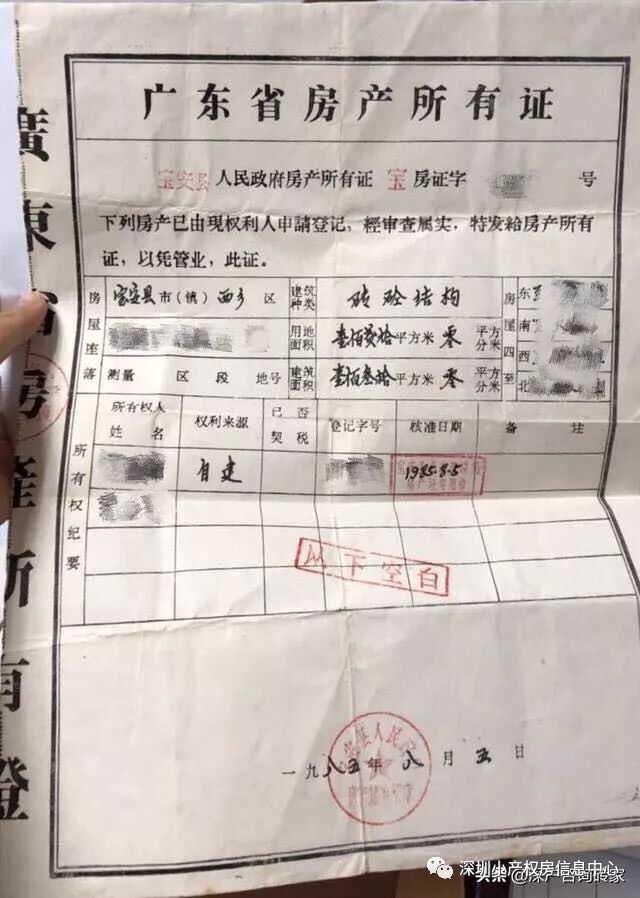 廣東省房產所有證
广东省房产所有证
宝安县人民政府房产所有证 宝 房证字 号
下列房产已由現权利人申請登记,經审查属实,特发給房产所有
证,以凭管业,此证。
房屋座落 宝安县市(镇)西乡 区 建筑种类 砖砼结构 房屋四至 东
用地面积 平方米 零 平方分米 南
西
测量 区 段 地号 建筑面积 壹佰叁拾平方米 零 平方分米 北
所有权纪要 所有权人姓名 权利来源 已否契税 登记字号 核准日期 备注
自建 1985.8.5
以下空白
一九八五年八月五日
深圳小产权房信息中心
头条@深户咨询砖家